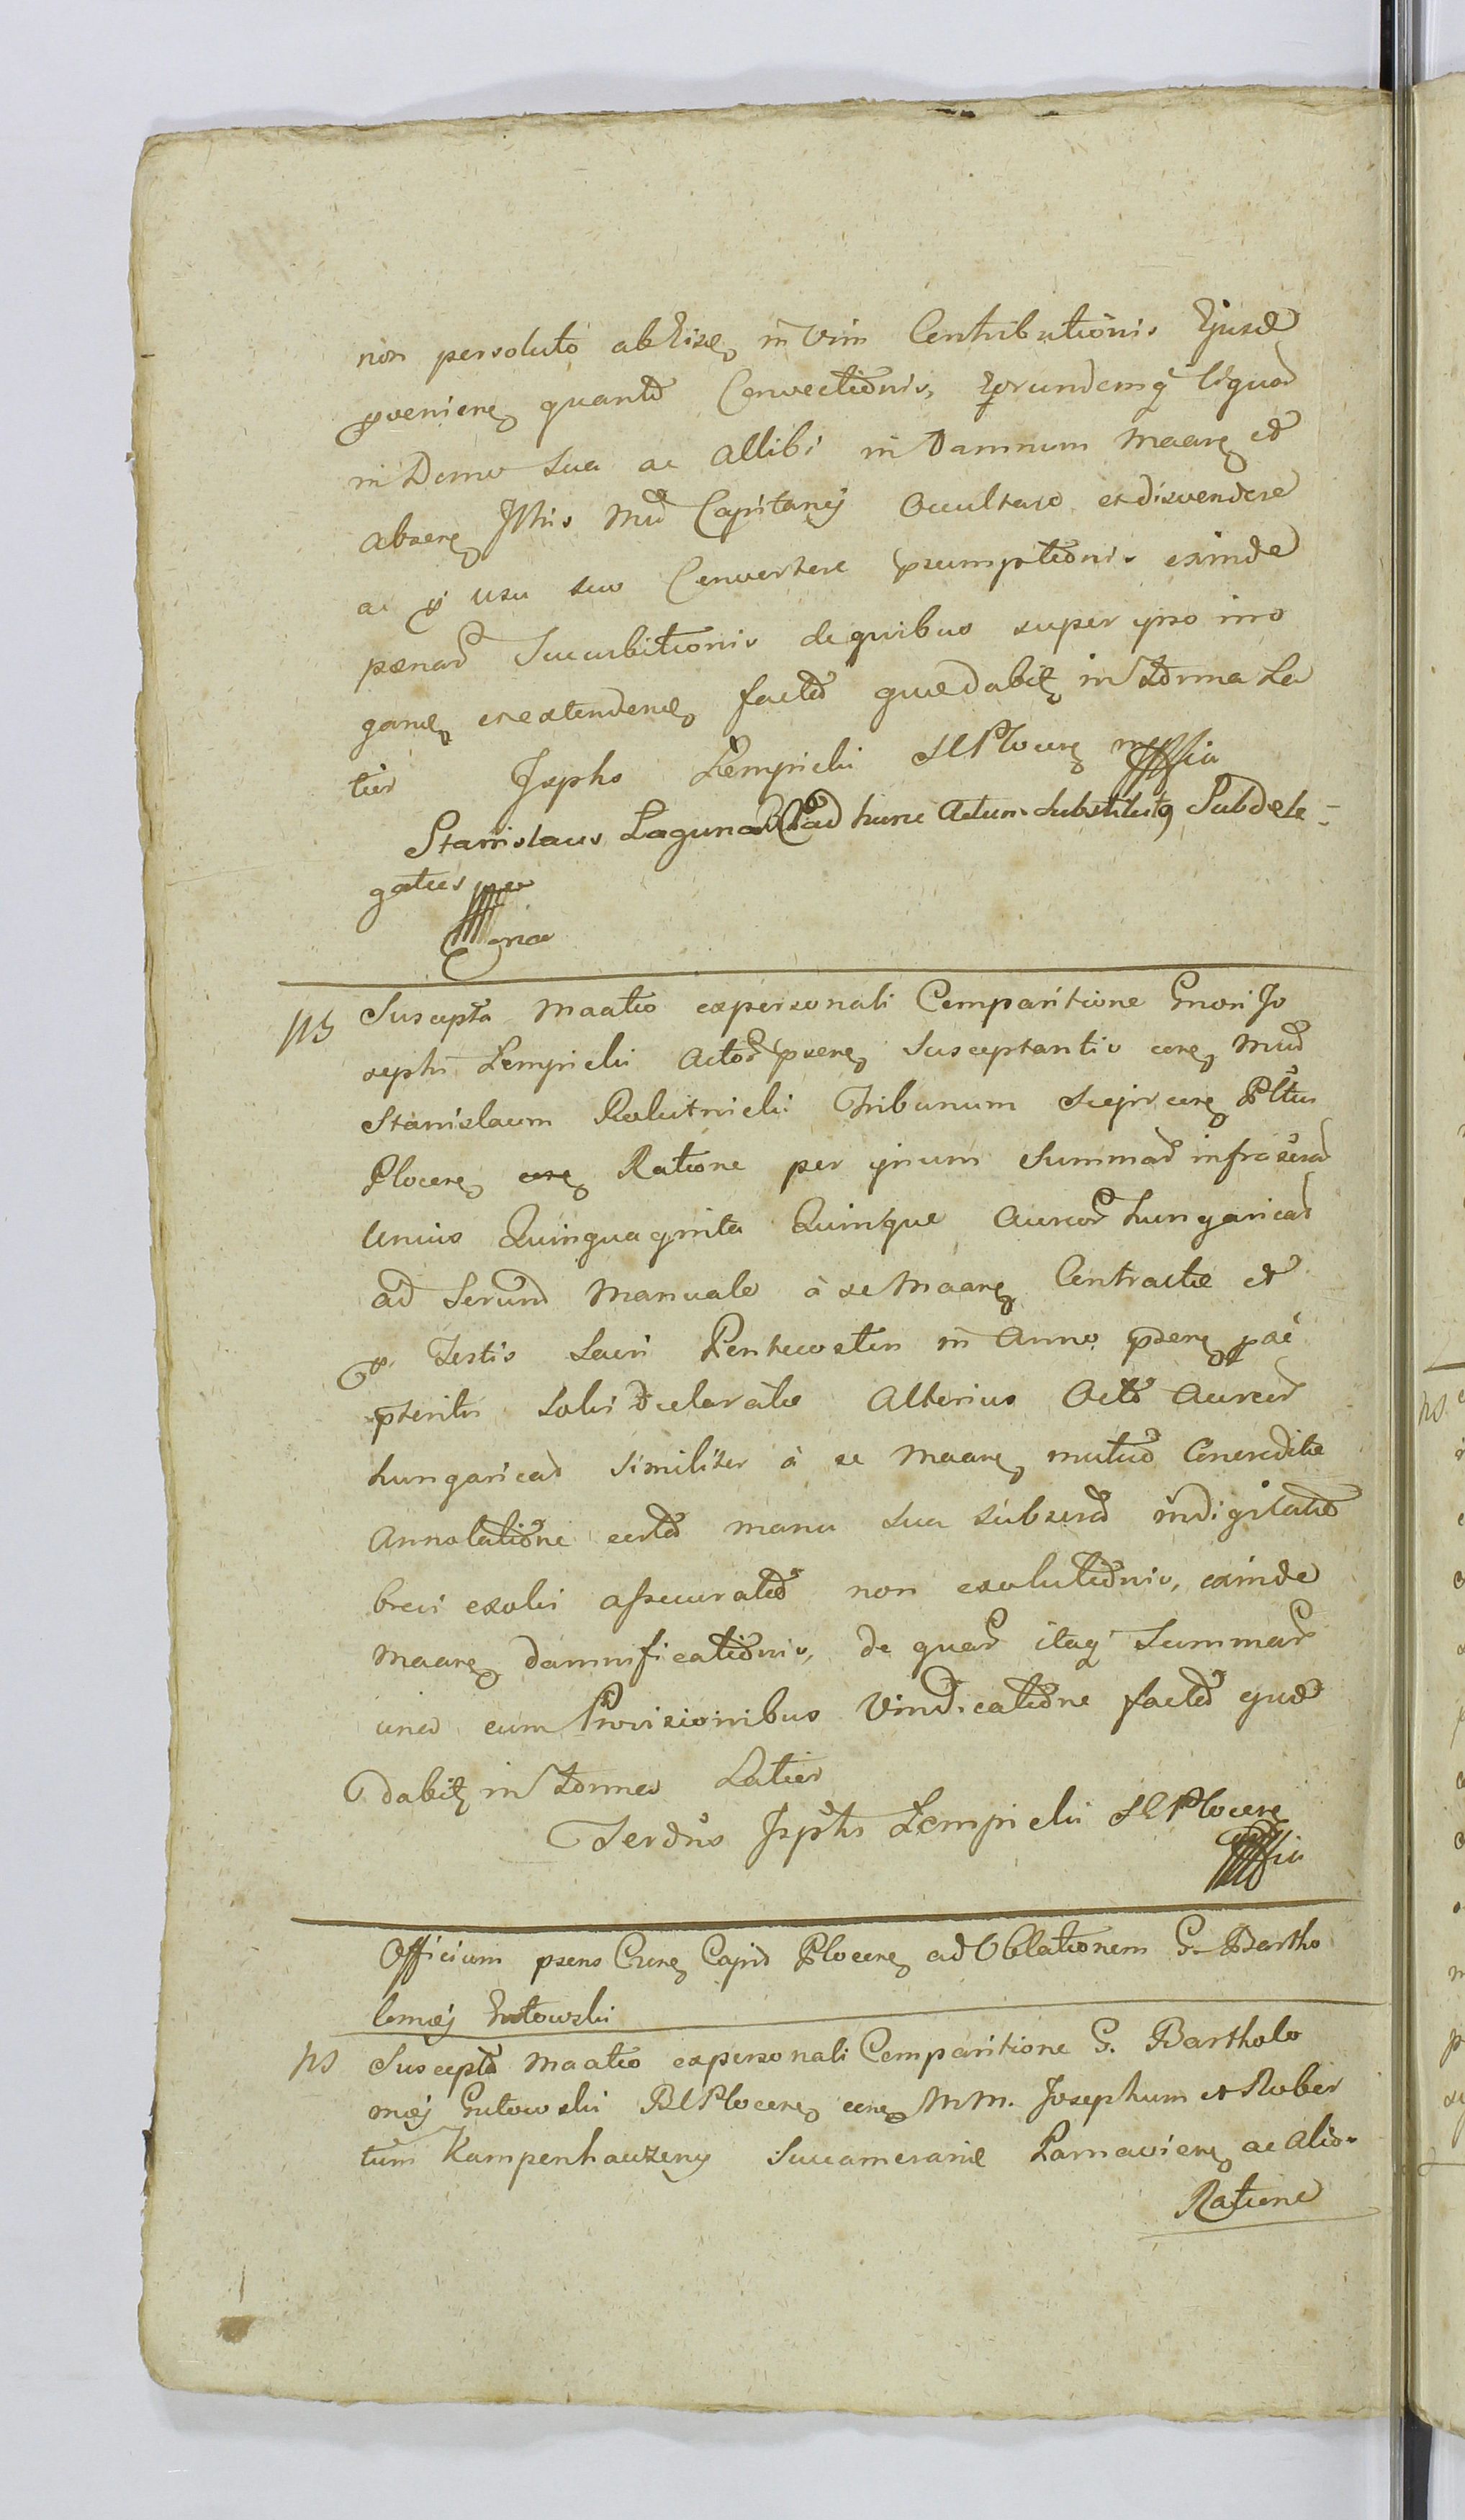 non persoluto ab Eisdę in Vim Contributionis Ejusd
proveniene quanto Convectionis, Eorundemq̨ lignor
in Domo sua ac allibi in Damnum Maare et
absene Illris Mfci Capitanei occultare et disvendere
ac p usu suo Convertere psumptionis exinde
paenar Succubitionis de quibus super ipso irro
gand et extendend facto quaedabit in Forma La
tius Jspho Lempicki SC Plocen mppia
Stanislaus Laguna ad hunc Actum Substitutq Subdele=
gatus mp
pria
ps Suscepta Maatio ex personali Comparitione Gnosi Jo
sephi Lempicki Actor psene Susceptantis cone Mfcum
Stanislaum Rokitnicki Tribunum Sieprcene Pltus
Plocene cone Ratione per ipsum Summar infrascr
Unius Quinquaginta Quinque Aureor hungarical
ad Scrund Manuale à se Maane Contractae et
p Festis Sacri Pentecostes in Anno psene pae
pteritis solvi declaratae Alterius Octo Aureor
hungarical similiter à se Maane mutuo Concreditae
Annotatione certo manu sua subscrd indigitato
brevi exolvi assecurato non exolutionis, exinde
Maane damnificationis, de quar itaq̨ Summar
una cum Provisionibus Vindicatione facto quae
dabit in Forma Latius
Ferdus Jsphs Lempicki SC Plocene
mppia
Officium psens Crene Capid Plocene ad Oblationem G. Bartho
lomej Gutowski
ps Suscepta Maatio ex personali Comparitione G. Bartholo
mej Gutowski BC Plocene cone MM. Josephum et Rober
tum Kampenhauzeny Succamerarid Parnaviene ac Alios
Ratione